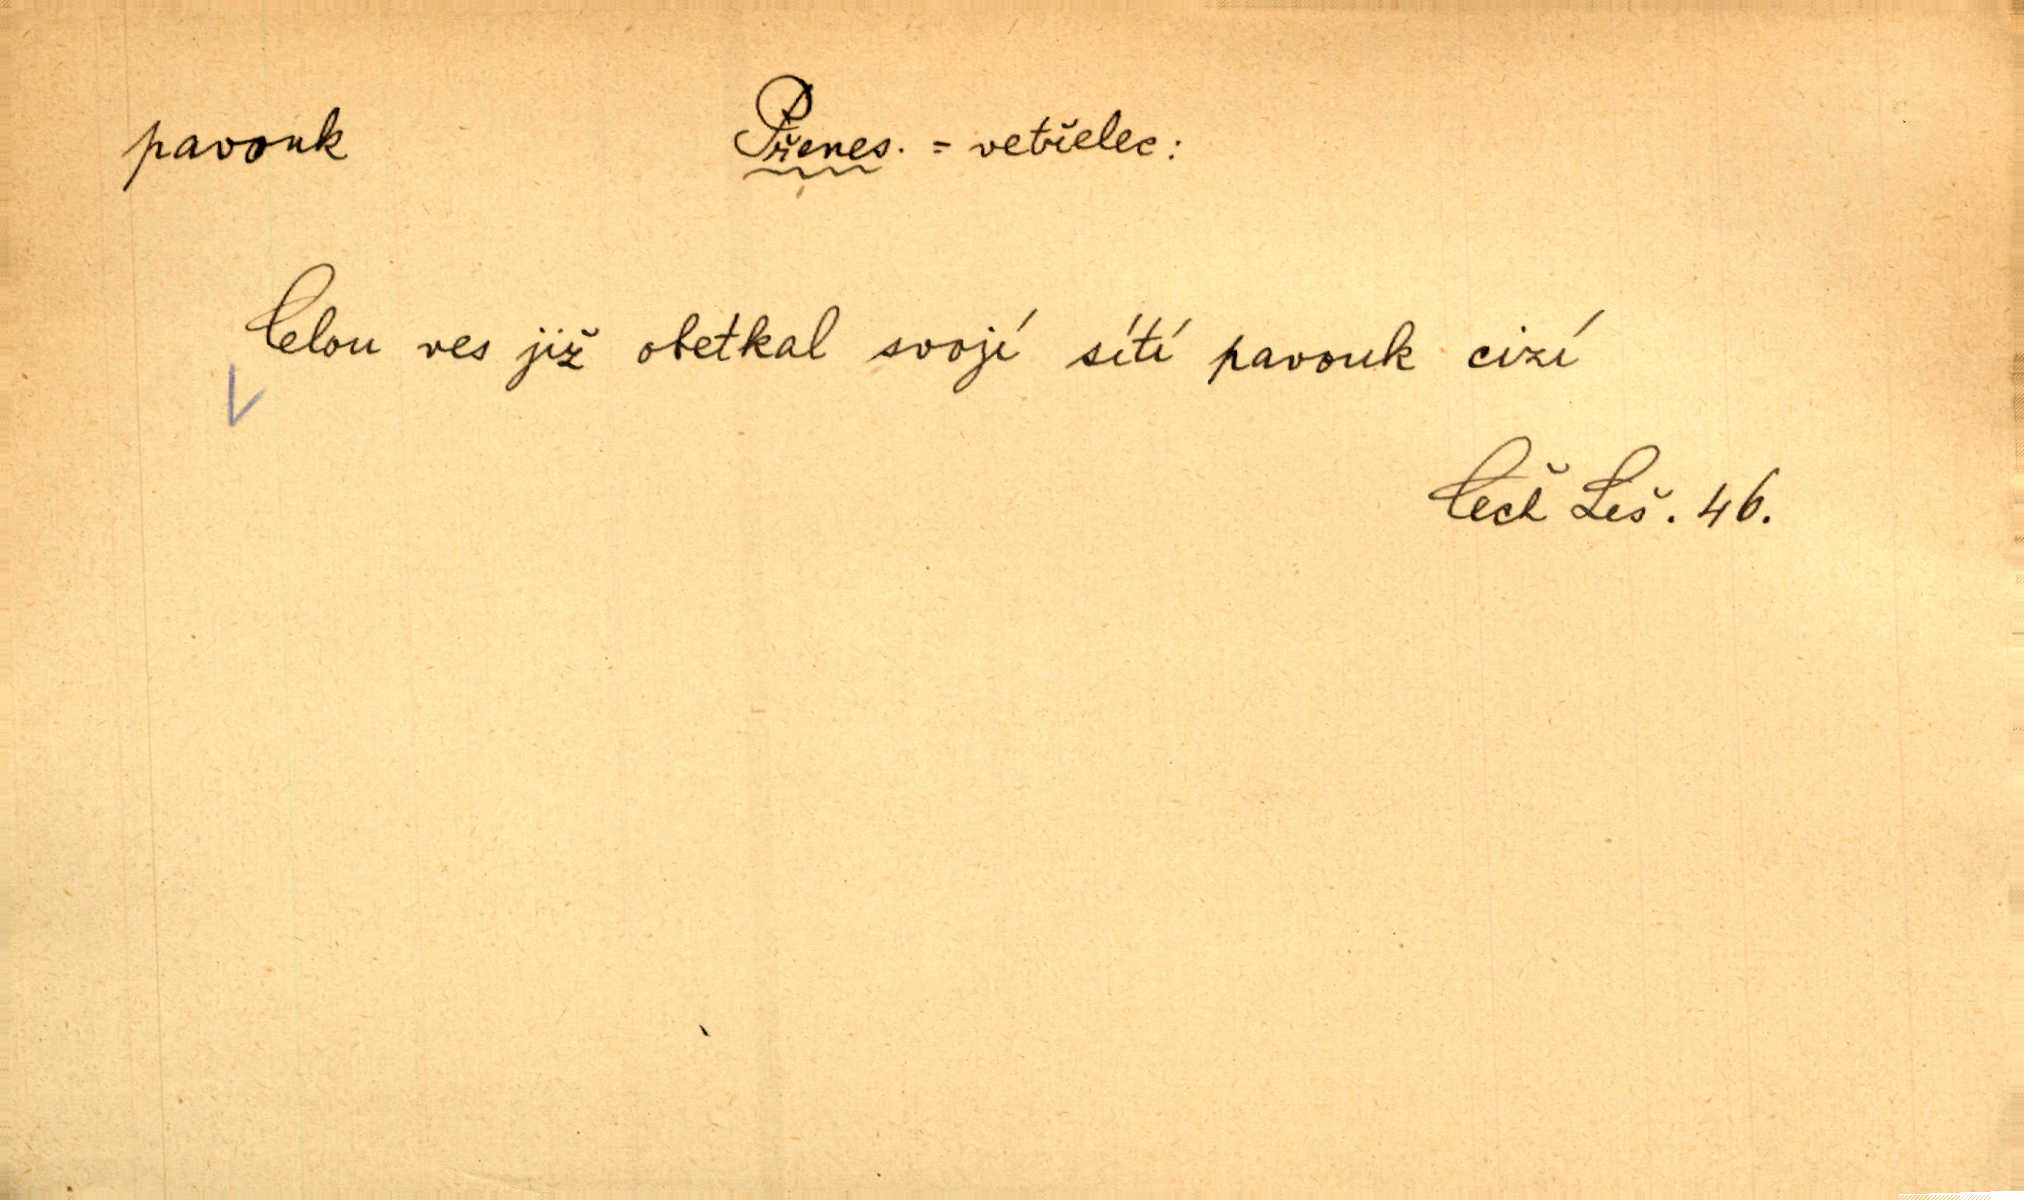 pavouk Přenes. = vetřelec:
Celou ves již obetkal svojí sítí pavouk cizí
Čech Leš. 46.